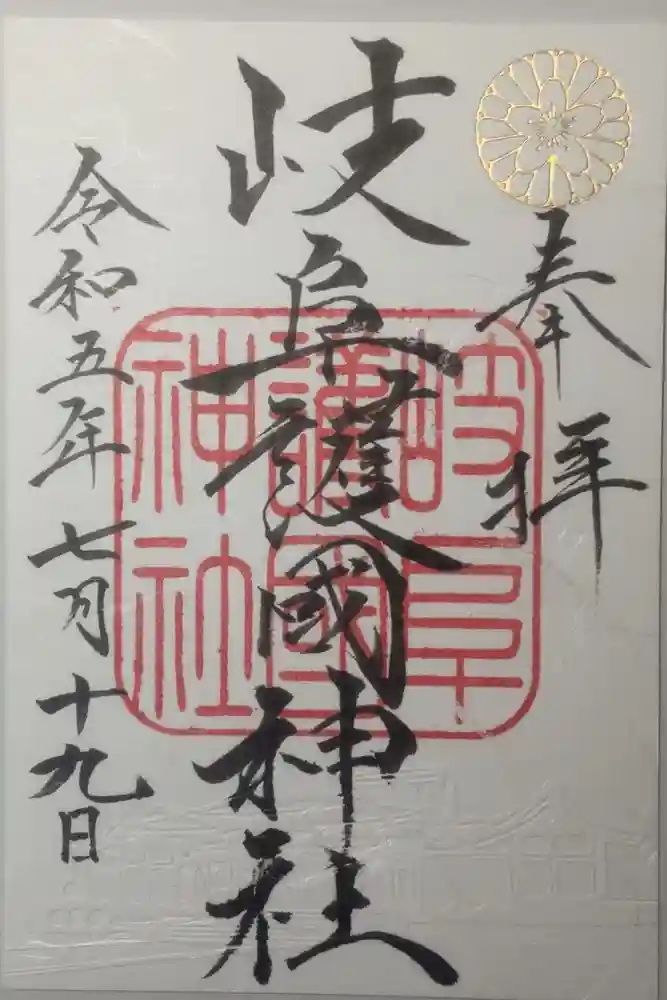 奉拝
岐阜護國神社
岐阜護國神社
令和五年七月十九日